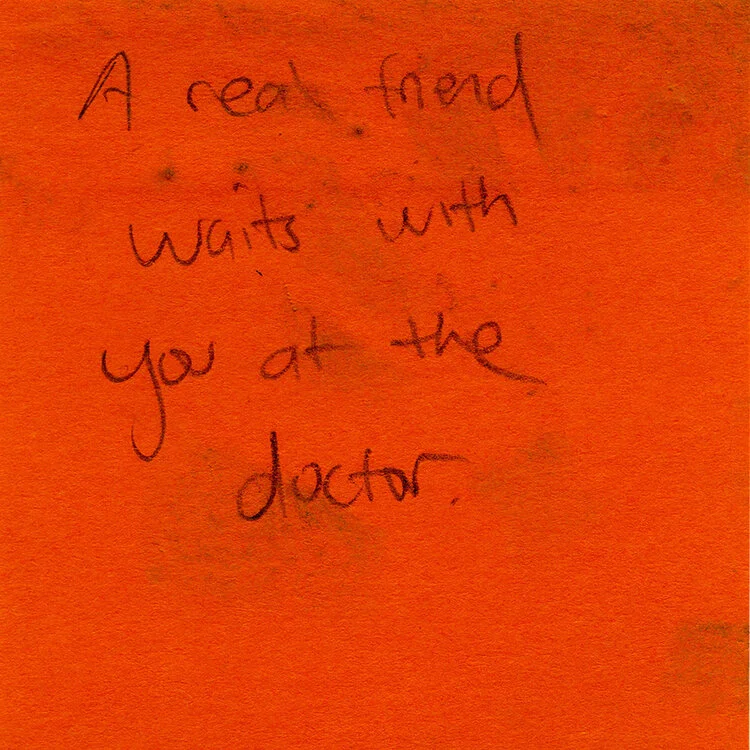 A real friend
waits with
you at the
doctor.